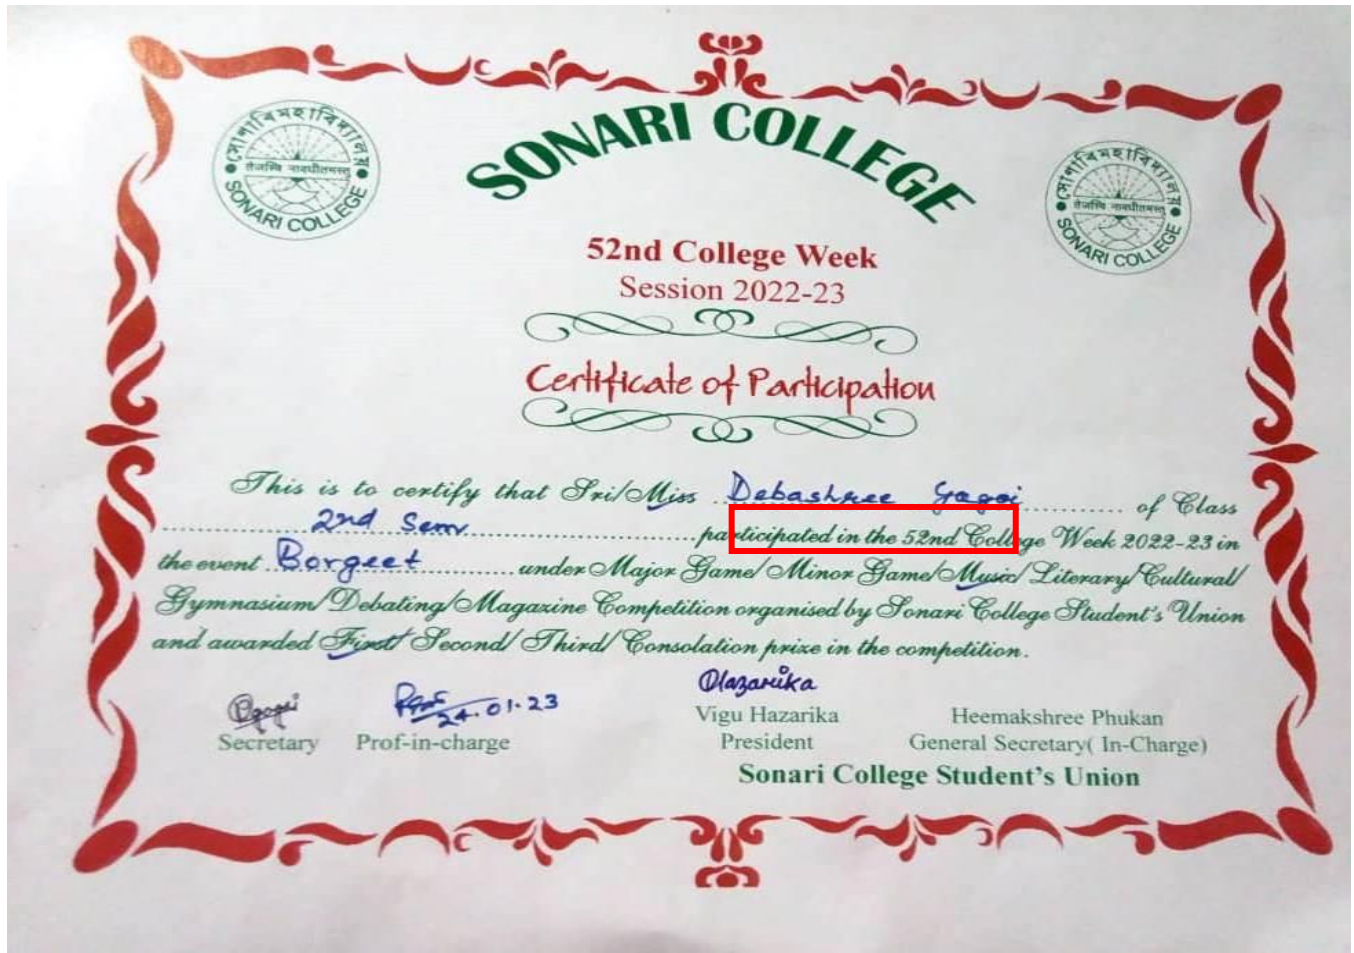 সোণাৰি মহাবিদ্যালয়
तेजस्वि नावधीतमस्तु
SONARI COLLEGE
SONARI COLLEGE
সোণাৰি মহাবিদ্যালয়
तेजस्वि नावधीतमस्तु
SONARI COLLEGE
52nd College Week
Session 2022-23
Certificate of Participation
This is to certify that Sri/Miss Debashree Gogoi of Class
2nd Sem participated in the 52nd College Week 2022-23 in
the event Borgeet under Major Game/Minor Game/Music/Literary/Cultural/
Gymnasium/Debating/Magazine Competition organised by Sonari College Student's Union
and awarded First/Second/Third/Consolation prize in the competition.
24.01.23
Hazarika
Secretary Prof-in-charge
Vigu Hazarika
President
Heemakshree Phukan
General Secretary( In-Charge)
Sonari College Student's Union